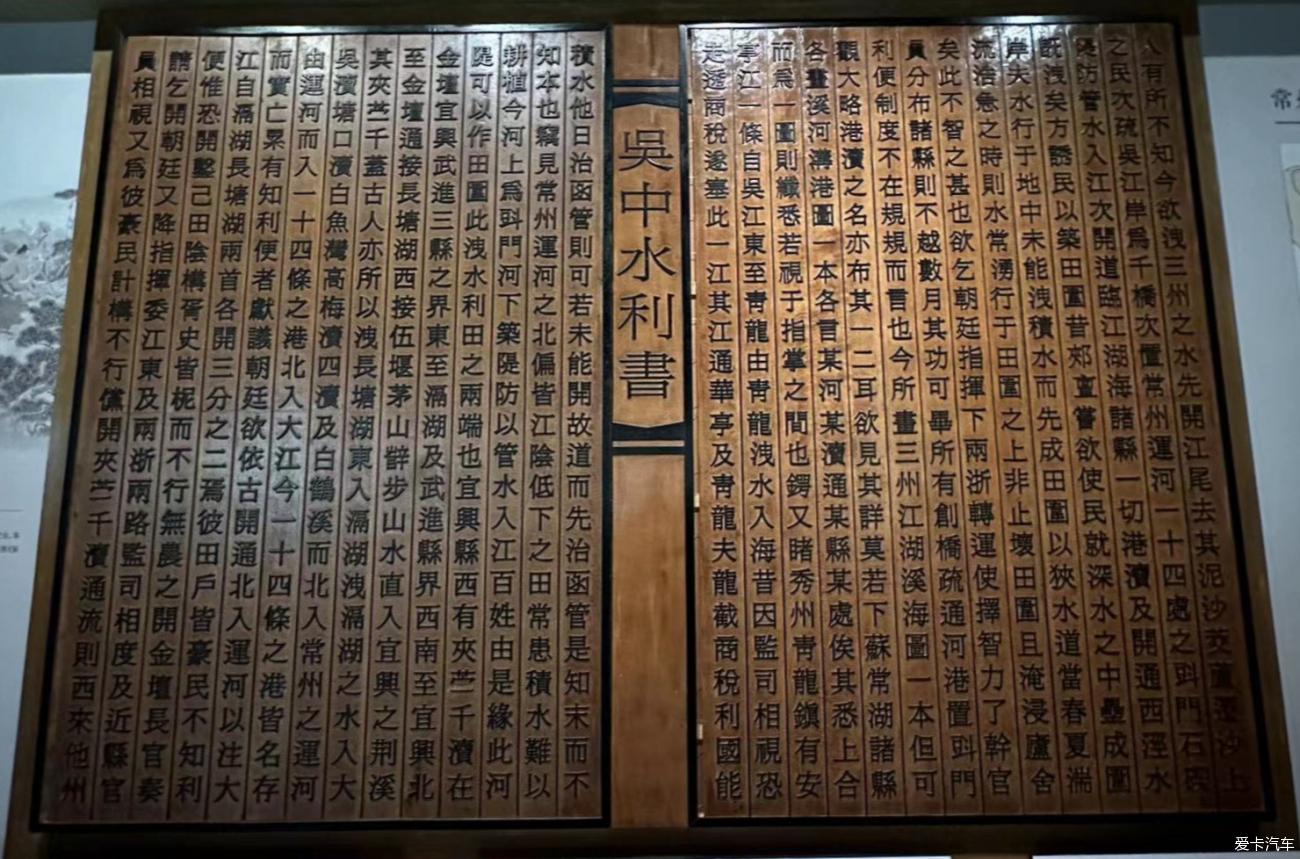 人有所不知今欲洩三州之水先開江尾去其泥沙茭蘆遷沙上
之民次疏吳江岸爲千橋次置常州運河一十四處之㪷門石碶
隄防管水入江次開道臨江湖海諸縣一切港瀆及開通西涇水
既洩矣方誘民以築田圍昔郟亶嘗欲使民就深水之中壘成圍
岸夫水行于地中未能洩積水而先成田圍以狹水道當春夏湍
流浩急之時則水常湧行于田圍之上非止壞田圍且淹浸廬舍
矣此不智之甚也欲乞朝廷指揮下兩浙轉運使擇智力了幹官
員分布諸縣則不越數月其功可畢所有創橋疏通河港置㪷門
利便制度不在規規而言也今所畫三州江湖溪海圖一本但可
觀大略港瀆之名亦布其一二耳欲見其詳莫若下蘇常湖諸縣
各畫溪河溝港圖一本各言某河某瀆通某縣某處俟其悉上合
而爲一圖則纖悉若視于指掌之間也鍔又睹秀州青龍鎮有安
亭江一條自吳江東至青龍由青龍洩水入海昔因監司相視恐
走透商稅遂塞此一江其江通華亭及青龍夫龍截商稅利國能
吳中水利書
積水他日治函管則可若未能開故道而先治函管是知末而不
知本也竊見常州運河之北偏皆江陰低下之田常患積水難以
耕植今河上爲㪷門河下築隄防以管水入江百姓由是緣此河
隄可以作田圍此洩水利田之兩端也宜興縣西有夾苧千瀆在
金壇宜興武進三縣之界東至滆湖及武進縣界西南至宜興北
至金壇通接長塘湖西接伍堰茅山辪步山水直入宜興之荆溪
其夾苧千蓋古人亦所以洩長塘湖東入滆湖洩滆湖之水入大
吳瀆塘口瀆白魚灣高梅瀆四瀆及白鶴溪而北入常州之運河
由運河而入一十四條之港北入大江今一十四條之港皆名存
而實亡累有知利便者獻議朝廷欲依古開通北入運河以注大
江自滆湖長塘湖兩首各開三分之二焉彼田戶皆豪民不知利
便惟恐開鑿己田陰構胥史皆柅而不行無農之開金壇長官奏
請乞開朝廷又降指揮委江東及兩浙兩路監司相度及近縣官
員相視又爲彼豪民計構不行儻開夾苧千瀆通流則西來他州
常
爱卡汽车